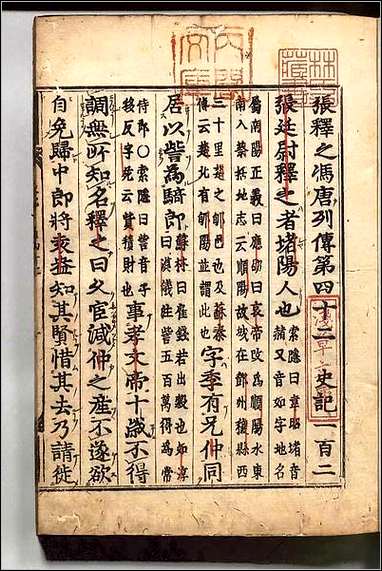 張釋之馮唐列傳第四十二 史記一百二
張廷尉釋之者堵陽人也
索隱曰韋昭堵音
赭又音如字地名
屬南陽正義曰應劭曰哀帝改爲順陽水東
南入蔡括地志云順陽故城在鄧州穰縣西
三十里楚之郇邑也及蘇秦
傳云楚北有郇陽並謂此也
字季有兄仲同
居以訾爲騎郎
蘇林曰雇錢若出穀也如淳
曰漢儀注訾五百萬得爲常
侍郎○索隱曰訾音子
移反字苑云貲積財也
事孝文帝十歲不得
調無所知名釋之曰久宦減仲之產不遂欲
自免歸中郎將袁盎知其賢惜其去乃請徙